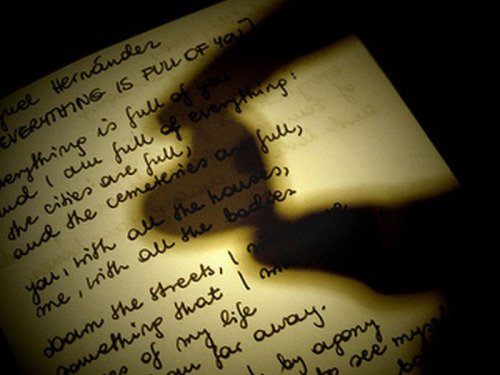 guel Hernández
EVERYTHING IS FULL OF YOU
verything is full of you
and I am full of everything:
the cities are full,
and the cemeteries are full,
you, with all the houses,
me, with all the bodies
Down the streets, I
something that I
es of my life
far away.
by agony
to see myse